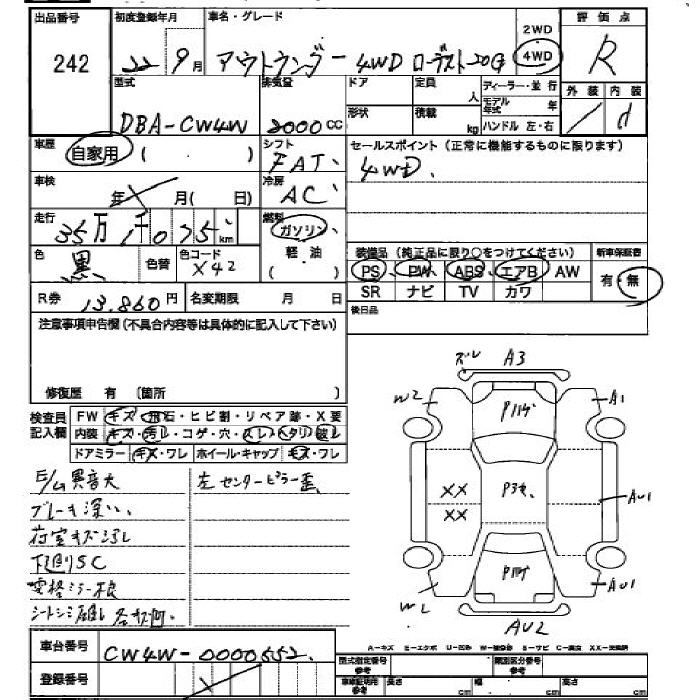 出品番号 初度登録年月 車名・グレード 評価点
242 22 9月 アウトランダー 4WD ローデスト20G 2WD 4WD R
型式 排気量 ドア 定員 人 ディーラー・並行 外装 内装
DBA-CW4W 2000cc 形状 積載 kg モデル年式 年 ハンドル 左・右 d
車歴 自家用 ( ) シフト FAT セールスポイント(正常に機能するものに限ります)
車検 年 月( 日) 冷房 AC 4WD
走行 35万 1千075km 燃料 ガソリン 軽油
色 黒 色替 色コード X42 装備品(純正品に限り○をつけてください) 新車保証書
PS PW ABS エアB AW 有・無
R券 13,860円 名変期限 月 日 SR ナビ TV カワ
注意事項申告欄(不具合内容等は具体的に記入して下さい) 後日品
修復歴 有 〔箇所 〕
検査員記入欄 FW キズ・飛石・ヒビ割・リペア跡・X要
内装 キズ・汚レ・コゲ・穴・スレ・ヘタリ・破レ
ドアミラー キズ・ワレ ホイール・キャップ キズ・ワレ
E/G異音大 左センターピラー歪
ブレーキ深い
荷室キズ汚レ
下廻りSC
電格ミラー不良
シートシミ
ズレ A3
W2 A1
P1ﾀﾞ
XX P3ｷ AU1
XX
P1ﾀﾞ
W2 AU1
AU2
車台番号 CW4W-0000552
登録番号
A－キズ E－エクボ U－凹み W－補修跡 S－サビ C－腐食 XX－交換済
型式指定番号 参考 類別区分番号 参考
車庫証明用 参考 長さ cm 幅 cm 高さ cm